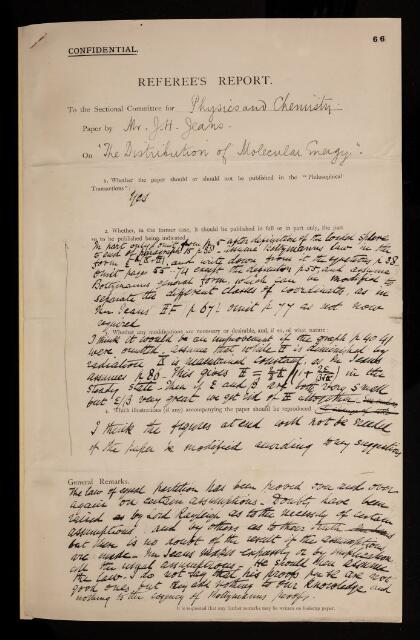 66
CONFIDENTIAL.
REFEREE'S REPORT.
To the Sectional Committee for Physics and Chemistry.
Paper by Mr. J.H. Jeans.
On "The Distribution of Molecular Energy".
1. Whether the paper should or should not be published in the "Philosophical
Transactions"
Yes
2. Whether, in the former case, it should be published in full or in part only, the part
In part only. Omit from p. 5 after definition of the loaded sphere
to be published being indicated:
to end of paragraph 15 p 33. Assume Boltzmann's law in the
form write down from it the equation p 38
Omit page 55-74 except the definition p 55, and assume
Boltzmann's general form, which can be modified to
separate the different classes of coordinates, as in
Mr Jeans p 67. Omit p 77 as not now
required
3. Whether any modifications are necessary or desirable, and, if so, of what nature:
I think it would be an improvement if the graph p 40 41
were omitted, assume that while is diminished by
radiation is maintained constant, as Mr Jeans
assumes p 80. This gives in the
steady state. Then if E and β are both very small
but E/β very great we get rid of altogether.
4. Which illustrations (if any) accompanying the paper should be reproduced
I think the figures at end will not be needed
if the paper be modified according to my suggestions
General Remarks.
The law of equal partition has been proved over and over
again on certain assumptions. Doubts have been
raised as by Lord Rayleigh as to the necessity of certain
assumptions, and by others as to their truth
but there is no doubt of the result if the assumptions
are made. Mr Jeans makes expressly or by implication
all the usual assumptions. He should then assume
the law. I do not say that his proofs p are not
good ones, but they add nothing to our knowledge and
nothing to the cogency of Boltzmann's proofs.
It is requested that any further remarks may be written on foolscap paper.